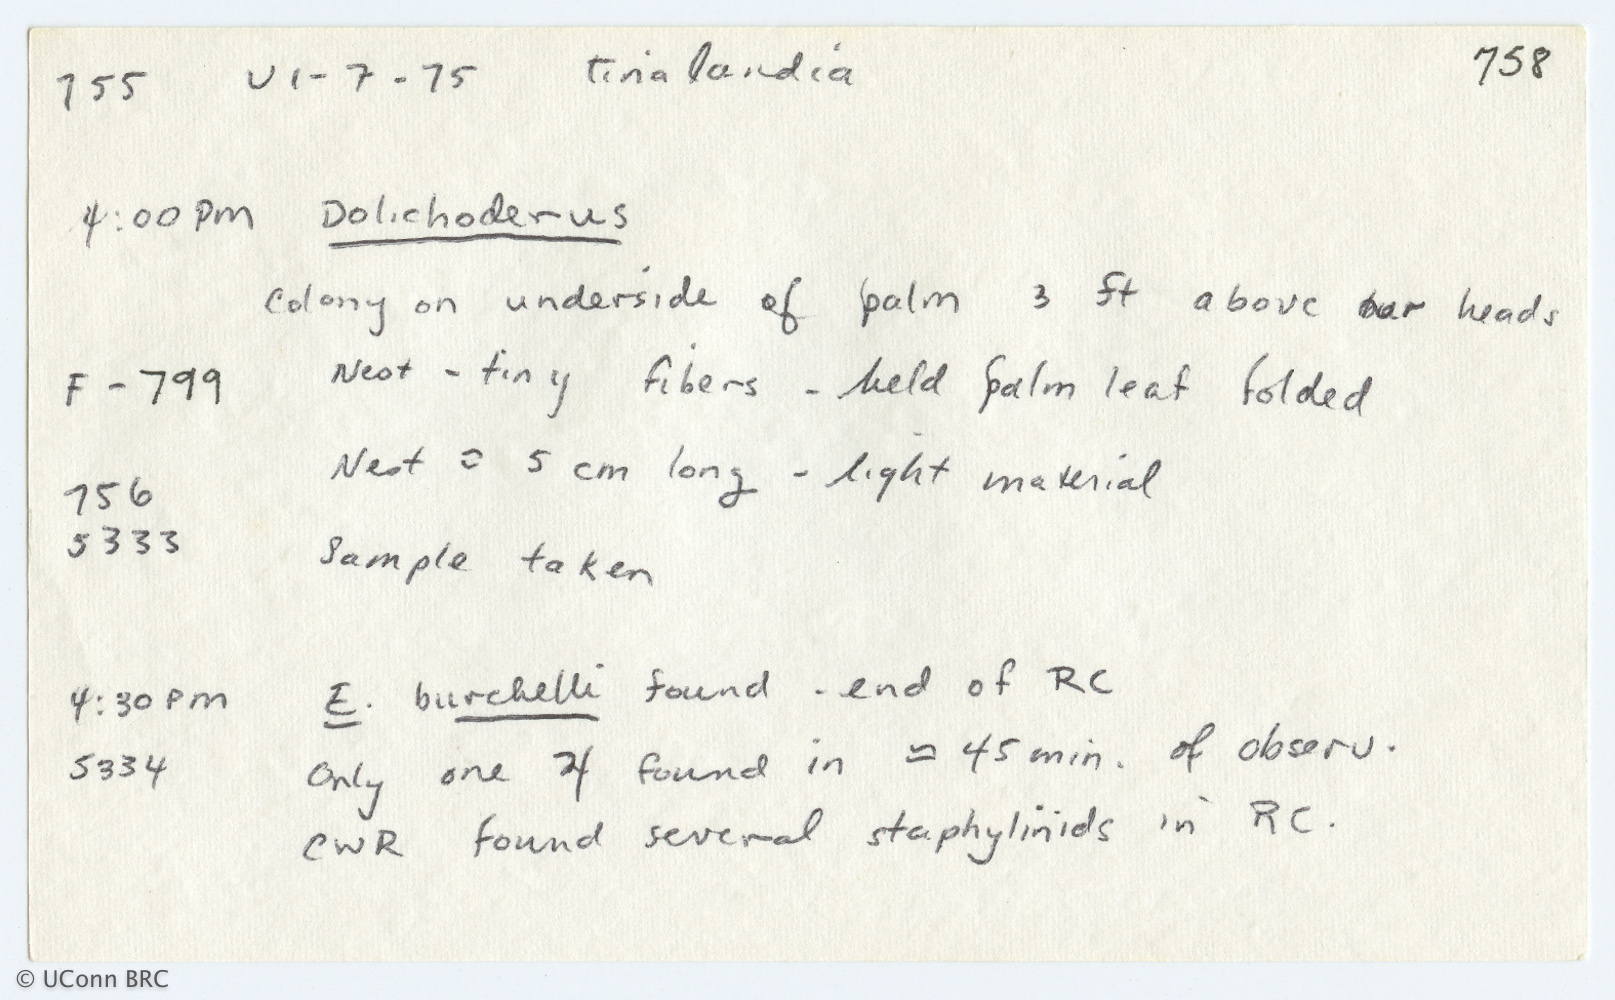 755 VI-7-75 Tinalandia 758
4:00 pm Dolichoderus
Colony on underside of palm 3 ft above our heads
F-799 Nest - tiny fibers - held palm leaf folded
Nest ≈ 5 cm long - light material
756
5333 Sample taken
4:30 pm E. burchelli found - end of RC
5334 Only one found in ≈ 45 min. of observ.
CWR found several staphylinids in RC.
© UConn BRC